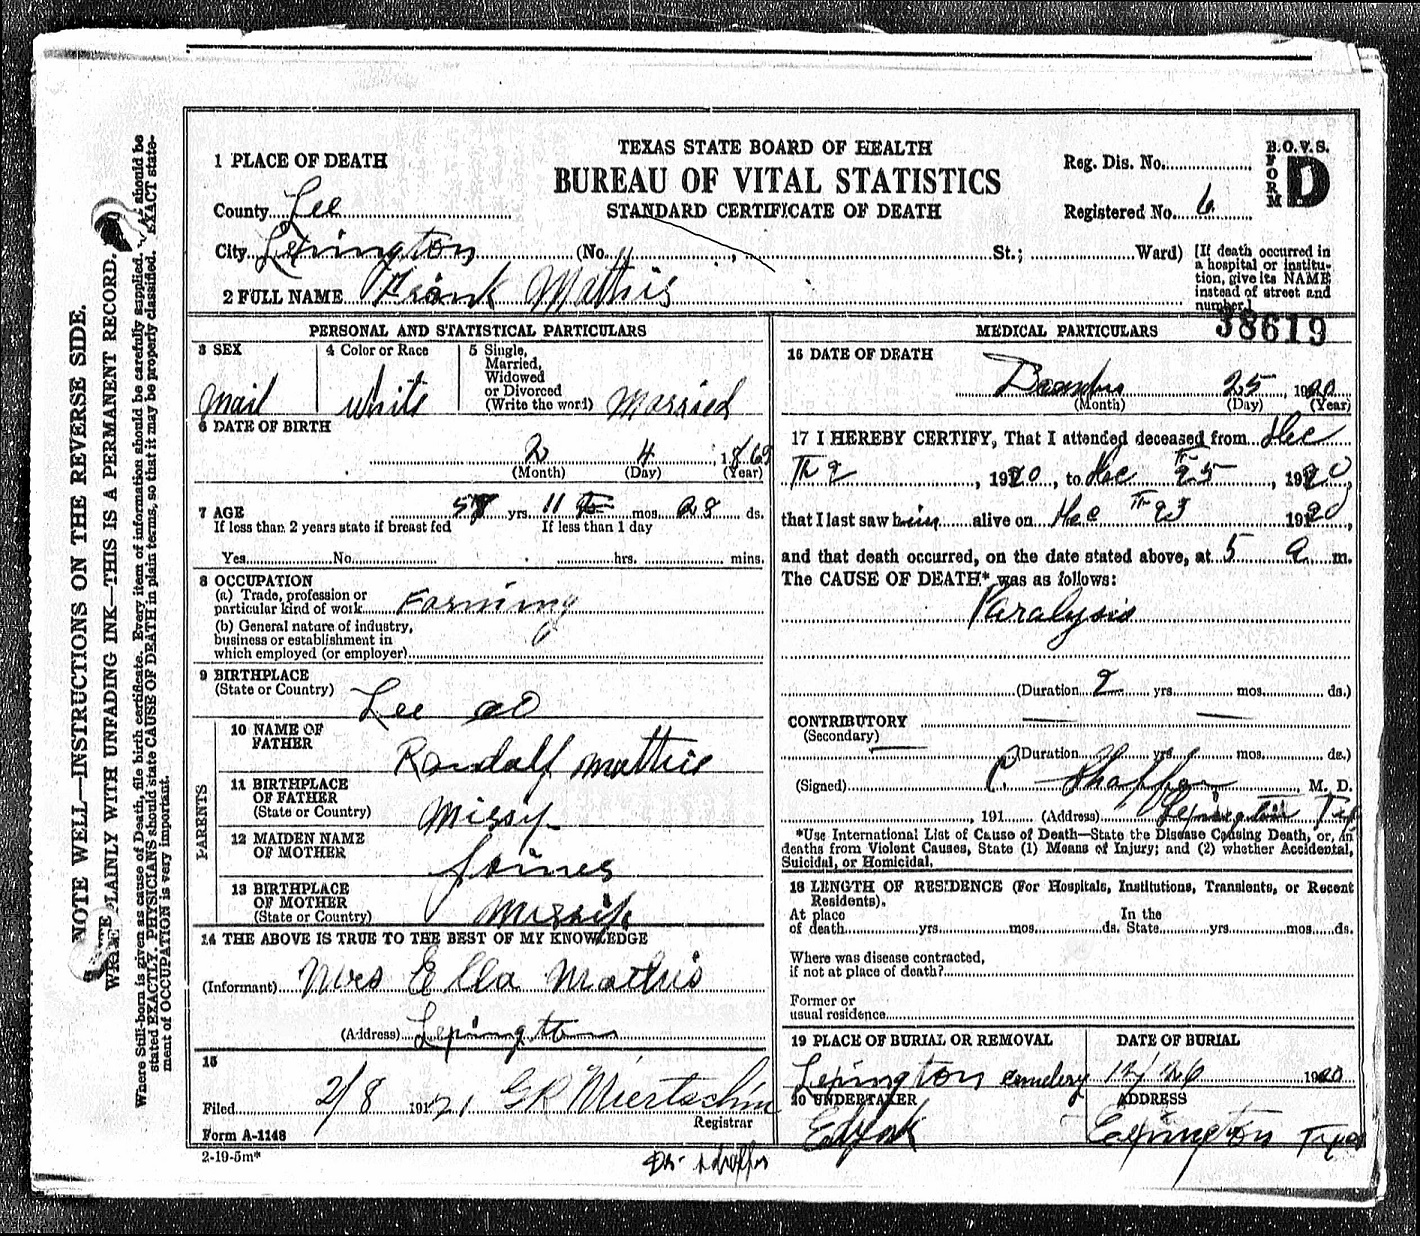 TEXAS STATE BOARD OF HEALTH
BUREAU OF VITAL STATISTICS
STANDARD CERTIFICATE OF DEATH
B.O.V.S.
FORM D
Reg. Dis. No.
Registered No. 6
1 PLACE OF DEATH
County Lee
City Lexington (No. , St.; Ward)
[If death occurred in
a hospital or institu-
tion, give its NAME
instead of street and
number.]
2 FULL NAME Frank Mathis
38619
PERSONAL AND STATISTICAL PARTICULARS
3 SEX
Mail
4 Color or Race
White
5 Single,
Married,
Widowed
or Divorced
(Write the word) Married
6 DATE OF BIRTH
2 4
(Month) (Day) (Year)
7 AGE yrs. 11 mos. 28 ds.
If less than 2 years state if breast fed If less than 1 day
Yes No. hrs. mins.
8 OCCUPATION
(a) Trade, profession or
particular kind of work Farming
(b) General nature of industry,
business or establishment in
which employed (or employer)
9 BIRTHPLACE
(State or Country) Lee co
PARENTS
10 NAME OF
FATHER
Randalf Mathis
11 BIRTHPLACE
OF FATHER
(State or Country) Missip
12 MAIDEN NAME
OF MOTHER
Joines
13 BIRTHPLACE
OF MOTHER
(State or Country) Missip
14 THE ABOVE IS TRUE TO THE BEST OF MY KNOWLEDGE
(Informant) Mrs Ella Mathis
(Address) Lexington
15
Filed 2/8 1921 GR Miertschin
Registrar
Form A-1148
2-19-5m*
MEDICAL PARTICULARS
16 DATE OF DEATH
December 25, 1920
(Month) (Day) (Year)
17 I HEREBY CERTIFY, That I attended deceased from Dec
Th 2, 1920, to Dec Th 25, 1920,
that I last saw him alive on Dec Th 23 1920,
and that death occurred, on the date stated above, at 5 a m.
The CAUSE OF DEATH* was as follows:
Paralysis
(Duration 2 yrs. mos. ds.)
CONTRIBUTORY
(Secondary)
(Duration yrs. mos. ds.)
(Signed) P. Shaffer, M. D.
, 191 (Address) Lexington Tex
*Use International List of Cause of Death—State the Disease Causing Death, or, in
deaths from Violent Causes, State (1) Means of Injury; and (2) whether Accidental,
Suicidal, or Homicidal.
18 LENGTH OF RESIDENCE (For Hospitals, Institutions, Transients, or Recent
Residents).
At place In the
of death yrs. mos. ds. State yrs. mos. ds.
Where was disease contracted,
if not at place of death?
Former or
usual residence
19 PLACE OF BURIAL OR REMOVAL
Lexington cemetery
DATE OF BURIAL
12/26 1920
20 UNDERTAKER
ADDRESS
Lexington Texas
Dr. Shaffer
NOTE WELL—INSTRUCTIONS ON THE REVERSE SIDE.
WRITE PLAINLY WITH UNFADING INK—THIS IS A PERMANENT RECORD.
Where Still-born is given as cause of Death, file birth certificate. Every item of information should be carefully supplied. should be
stated EXACTLY. PHYSICIANS should state CAUSE OF DEATH in plain terms, so that it may be properly classified. EXACT state-
ment of OCCUPATION is very important.